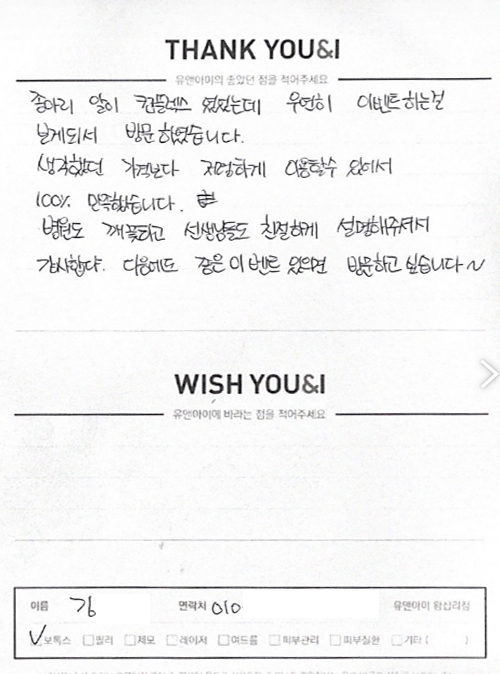 THANK YOU&I
유앤아이의 좋았던 점을 적어주세요
종아리 알이 컨플렉스 였었는데 우연히 이벤트하는걸
보게되서 방문하였습니다.
생각했던 가격보다 저렴하게 이용할수 있어서
100% 만족했습니다.
병원도 깨끗하고 선생님들도 친절하게 설명해주셔서
감사합니다. 다음에도 좋은 이벤트 있으면 방문하고 싶습니다~
WISH YOU&I
유앤아이에 바라는 점을 적어주세요
이름 김 연락처 010 유앤아이 왕십리점
보톡스 필러 제모 레이저 여드름 피부관리 피부질환 기타 ( )